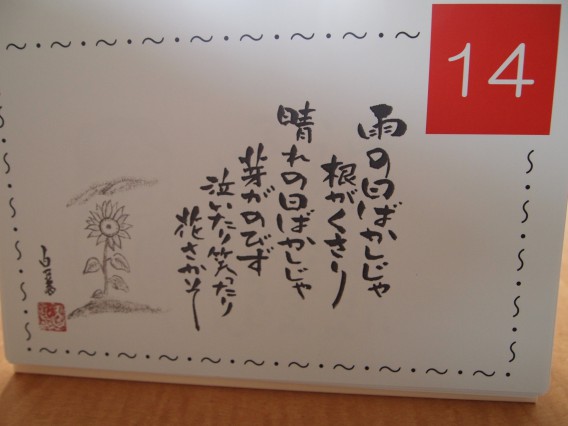 14
雨の日ばかしじゃ
根がくさり
晴れの日ばかしじゃ
芽がのびず
泣いたり笑ったり
花さかそ